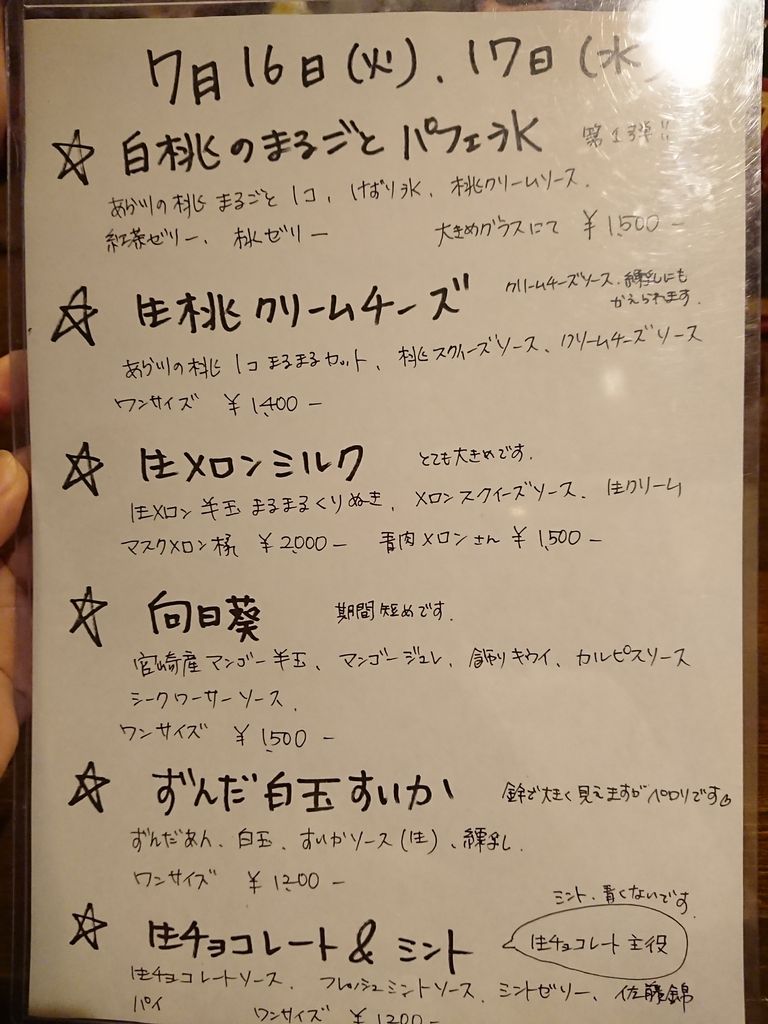 7月16日(火)、17日(水)
☆ 白桃のまるごとパフェ氷 第1弾!!
あら川の桃まるごと1コ、けずり氷、桃クリームソース、
紅茶ゼリー、桃ゼリー 大きめグラスにて ¥1,500-
☆ 生桃クリームチーズ クリームチーズソース、練乳にも
かえられます。
あら川の桃1コまるまるカット、桃スクイーズソース、クリームチーズソース
ワンサイズ ¥1,400-
☆ 生メロンミルク とても大きめです。
生メロン半玉まるまるくりぬき、メロンスクイーズソース、生クリーム
マスクメロン様 ¥2,000- 青肉メロンさん ¥1,500-
☆ 向日葵 期間短めです。
宮崎産マンゴー半玉、マンゴージュレ、飾りキウイ、カルピスソース
シークワーサーソース、
ワンサイズ ¥1,500-
☆ ずんだ白玉すいか 鉢で大きく見えますがペロリです
ずんだあん、白玉、すいかソース(生)、練乳
ワンサイズ ¥1,200-
ミント、青くないです。
☆ 生チョコレート&ミント 生チョコレート主役
生チョコレートソース、フレッシュミントソース、ミントゼリー、佐藤錦
パイ ワンサイズ ¥1,200-